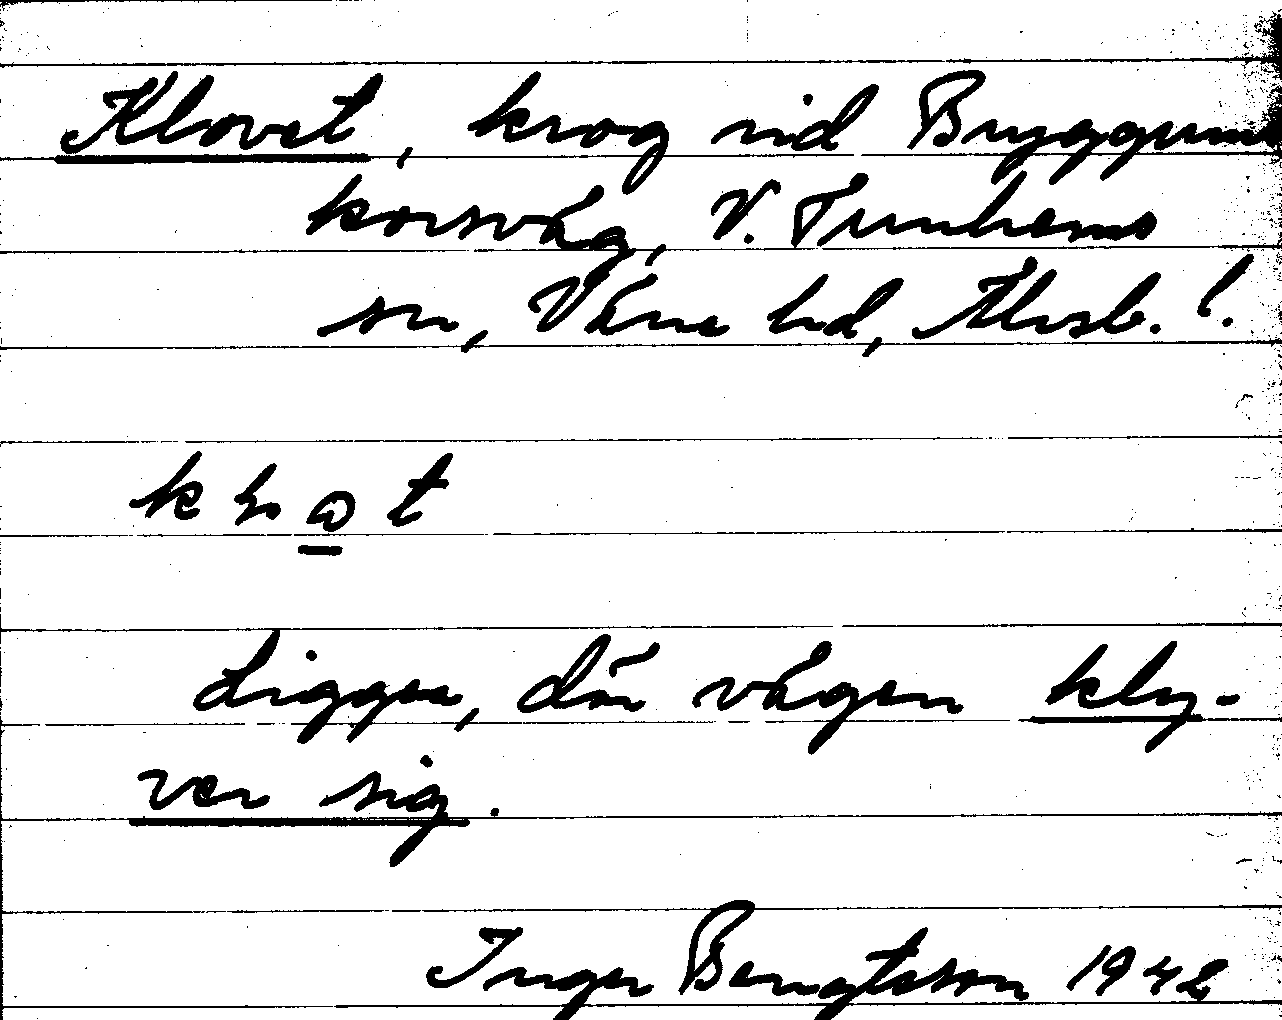 Klovet, krog vid Bryggums
korsväg, V. Tunhems
sn, Väne hd, Älvsb. l.
k
t
Ligger, där vägen kly-
ver sig.
Inger Bengtsson 1942